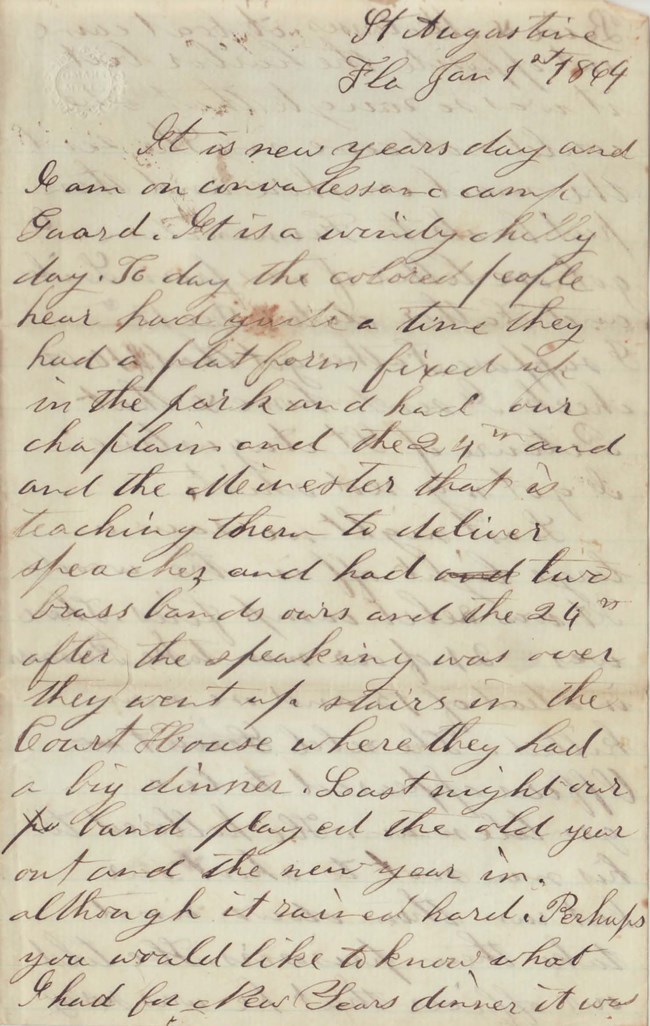 St Augustine
Fla Jan 1st 1864
It is new years day and
I am on convalessanc camp
Guard. It is a windy chilly
day. To day the colored people
hear had quite a time they
had a plat form fixed up
in the park and had our
chaplain and the 24th and
and the Meinester that is
teaching them to deliver
speaches and had and two
brass bands ours and the 24th
after the speaking was over
they went up stairs in the
Court House where they had
a big dinner. Last night our
band played the old year
out and the new year in.
although it rained hard. Perhaps
you would like to know what
I had for New Years dinner it was